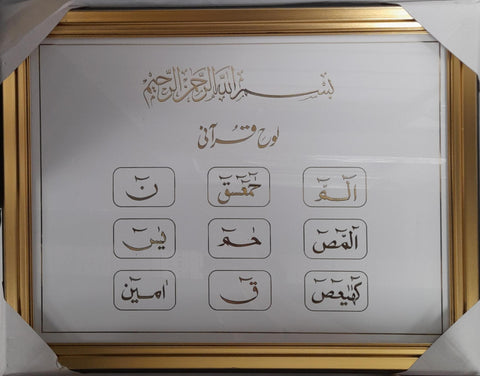 بسم الله الرحمن الرحيم
لوح قرآنی
الٓمّٓ حٰمٓعٓسٓقٓ نٓ
الٓمّٓصٓ حٰمٓ یٰسٓ
کٓهٰیٰعٓصٓ قٓ اٰمین